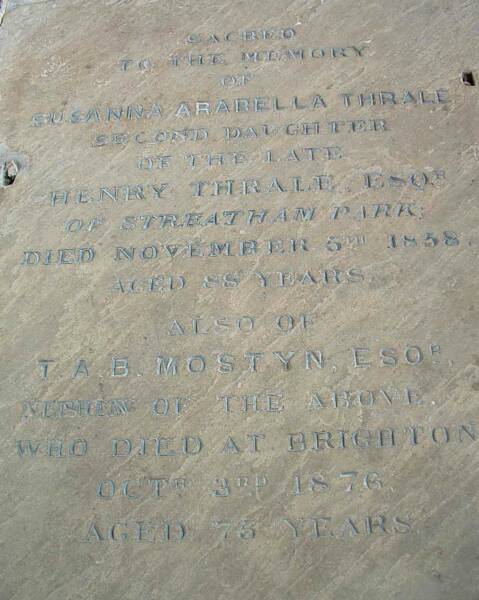 SACRED
TO THE MEMORY
OF
SUSANNA ARABELLA THRALE
SECOND DAUGHTER
OF THE LATE
HENRY THRALE, ESQR
OF STREATHAM PARK,
DIED NOVEMBER 5TH 1858.
AGED 88 YEARS.
ALSO OF
T A B. MOSTYN, ESQR.
NEPHEW OF THE ABOVE.
WHO DIED AT BRIGHTON
OCTR 3RD 1876
AGED 75 YEARS